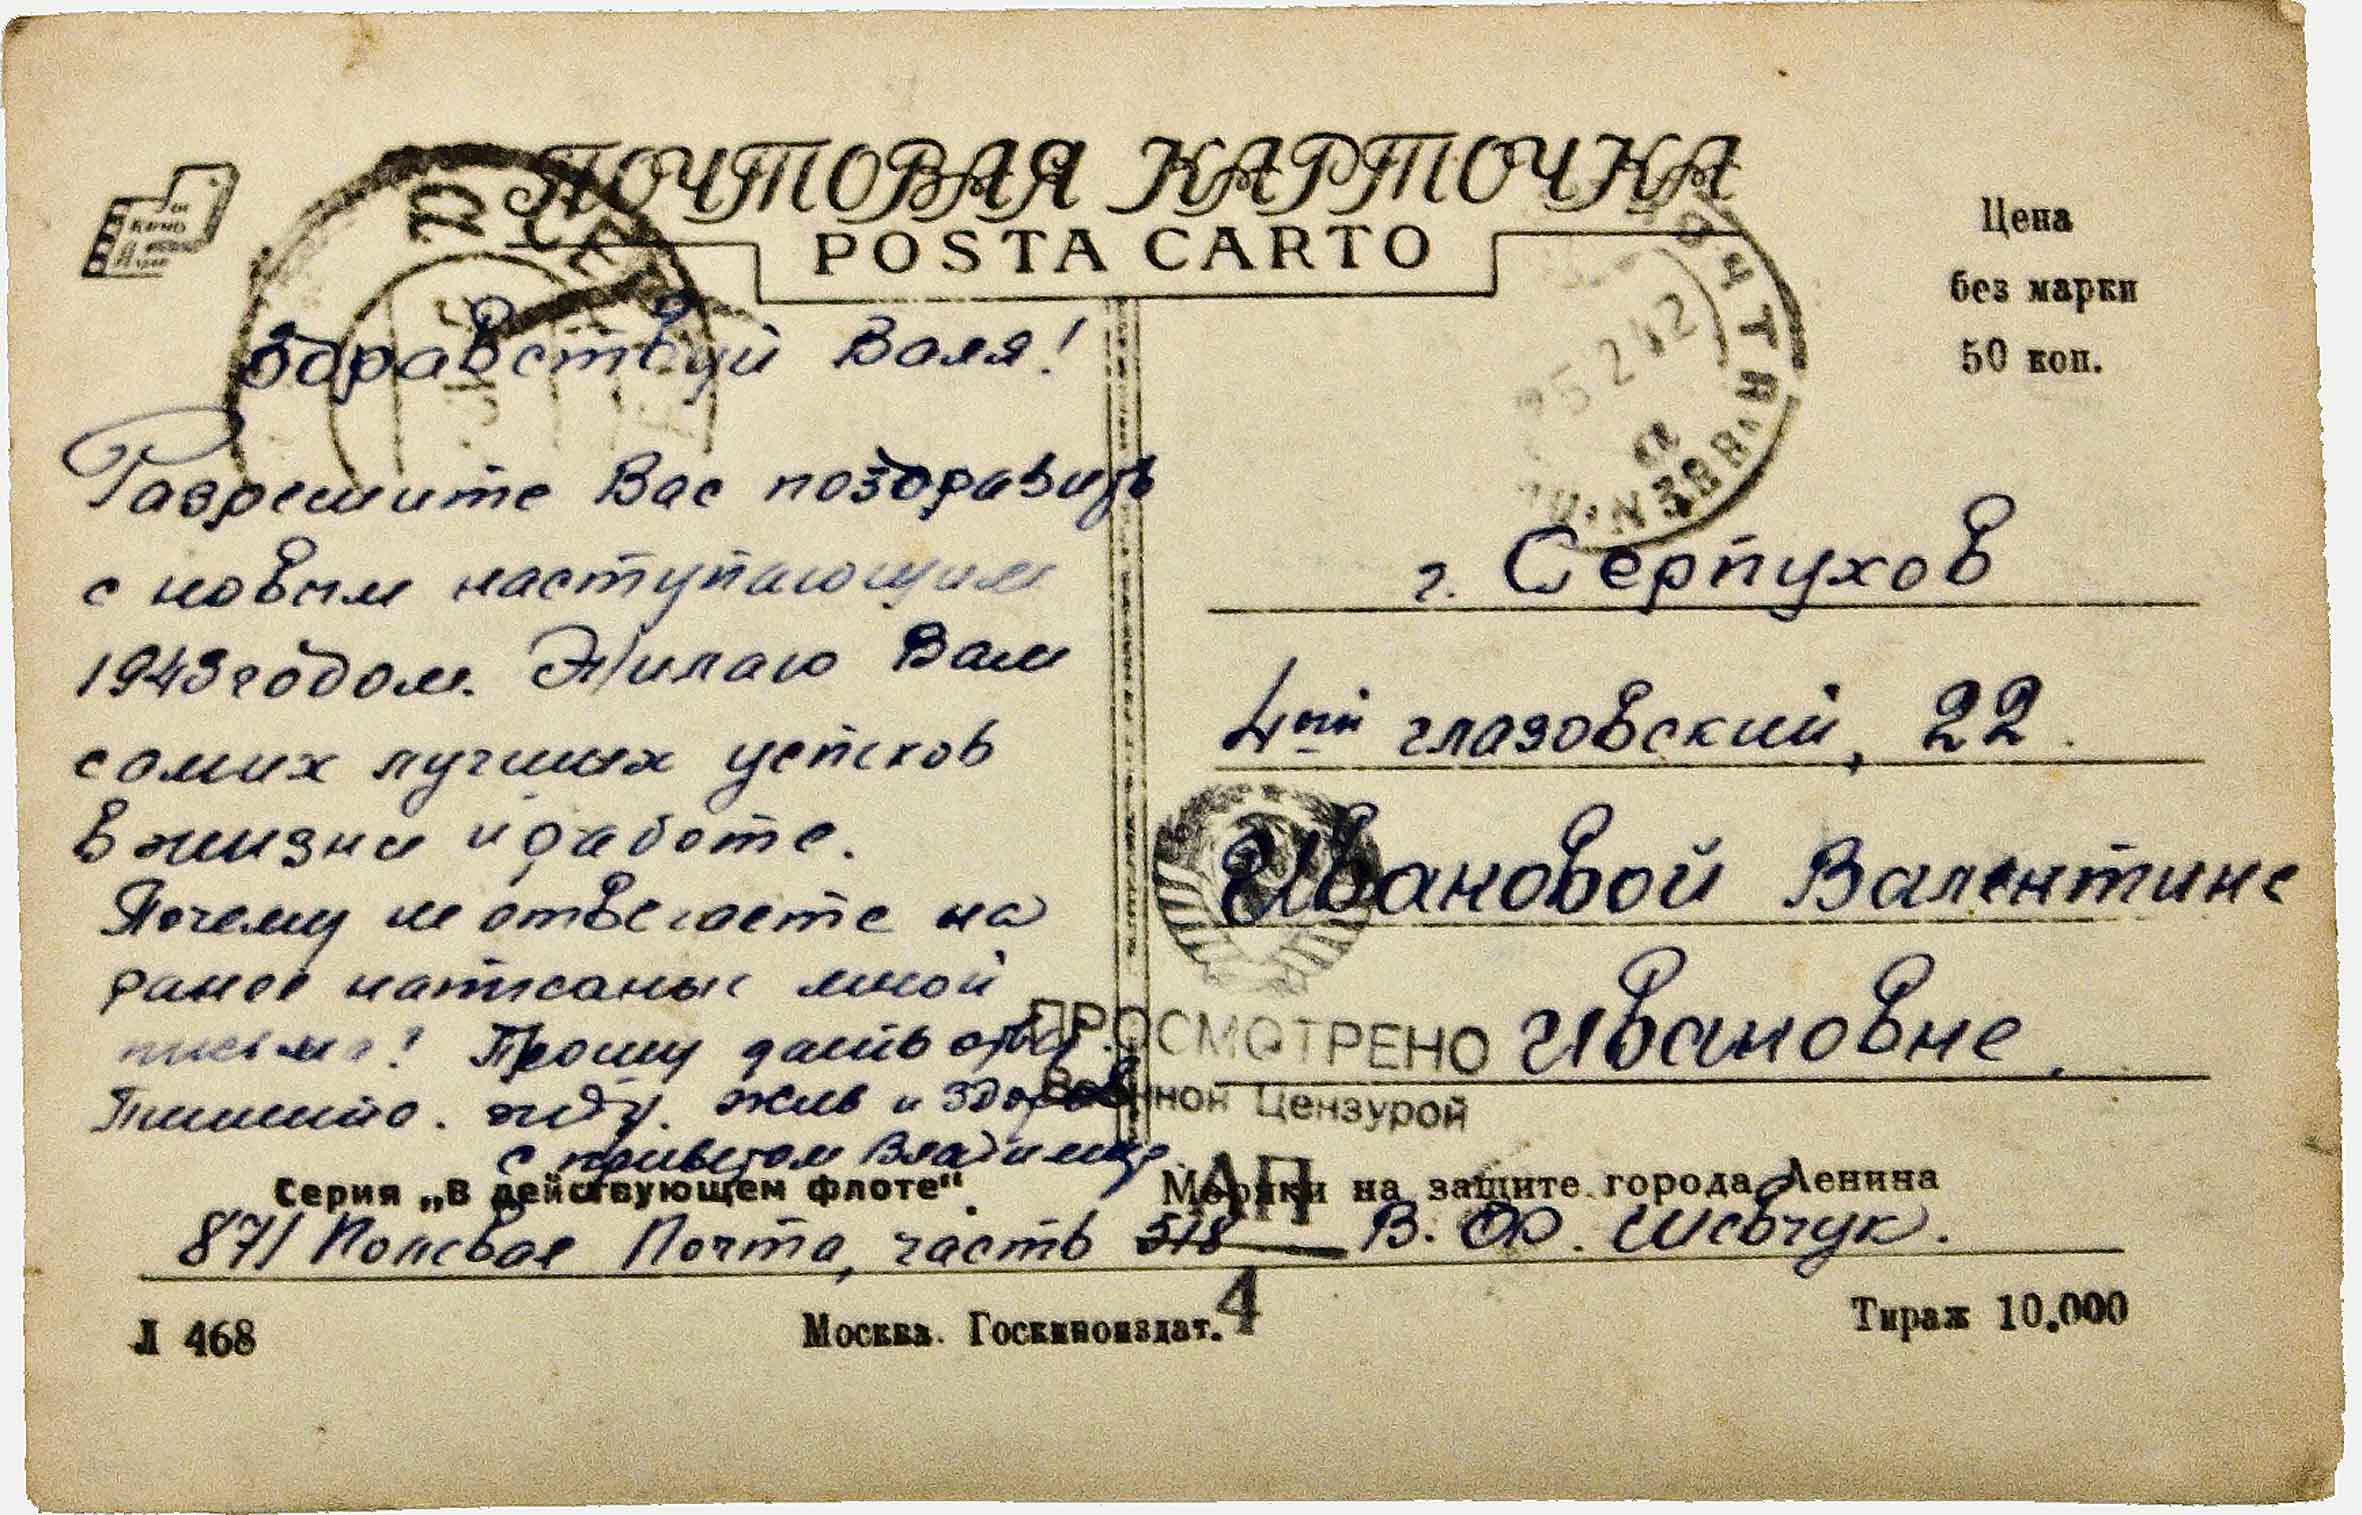 ПОЧТОВАЯ КАРТОЧКА
POSTA CARTO
Цена
без марки
50 коп.
ПОЧТА
25 2 42
Здравствуй Валя!
Разрешите Вас поздравить
с новым наступающим
1943 годом. Жилаю Вам
самих лучших успехов
в жизни и работе.
Почему не отвечаете на
ранее написаные мной
письма! Прошу дать ответ.
Пишите. жду. жив и здоров
с приветом Владимир
г. Серпухов
4ый глазовский, 22.
Ивановой Валентине
Ивановне.
ПРОСМОТРЕНО
Военной Цензурой
Серия „В действующем флоте“.
Моряки на защите города Ленина
871 Полевая Почта, часть 518 — В. Ф. Шевчук.
4
Л 468
Москва. Госкиноиздат.
Тираж 10.000